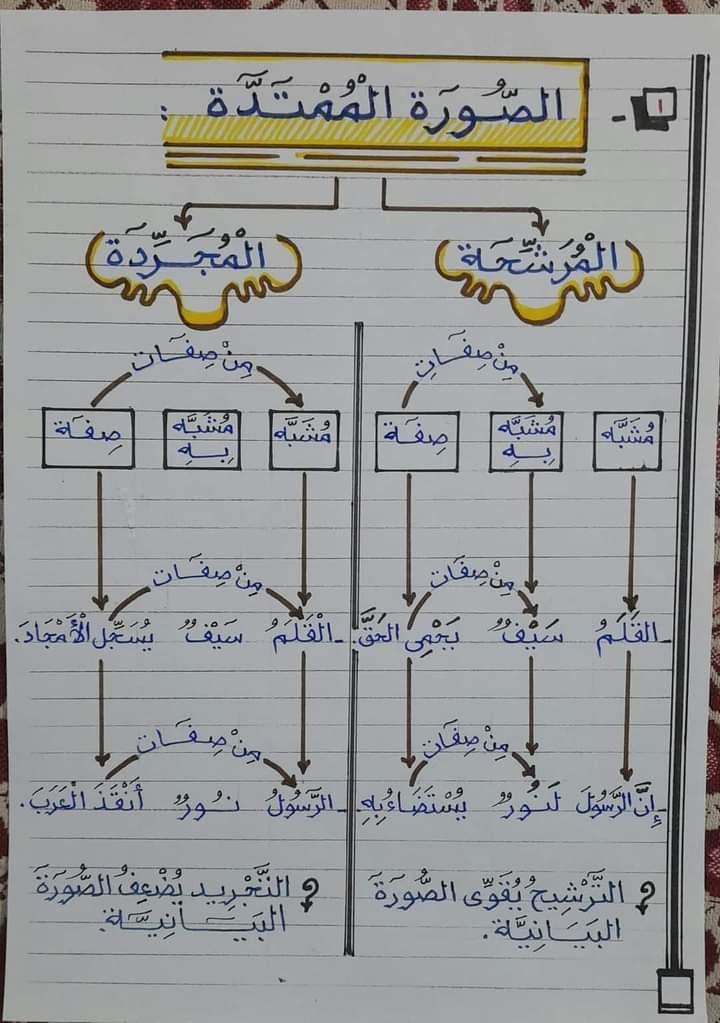 ١ - الصُّورَة الْمُمْتَدَّة :
الْمُرَشَّحَة
الْمُجَرَّدَة
مِنْ صِفَاتِ
مُشَبَّه
مُشَبَّه بِهِ
صِفَة
مِنْ صِفَات
- القَلَمُ سَيْفٌ يَحْمِى الحَقَّ.
مِنْ صِفَات
- إِنَّ الرَّسُولَ لَنُورٌ يُسْتَضَاءُ بِهِ
؟ التَّرْشِيحُ يُقَوِّى الصُّورَةَ
البَيَانِيَّة.
مِنْ صِفَات
مُشَبَّه
مُشَبَّه بِهِ
صِفَة
مِنْ صِفَات
- الْقَلَمُ سَيْفٌ يُسَجِّل الْأَمْجَادَ.
مِنْ صِفَات
- الرَّسُولُ نُورٌ أَنْقَذَ الْعَرَبَ.
؟ التَّجْرِيد يُضْعِفُ الصُّورَةَ
البَيَانِيَّة.